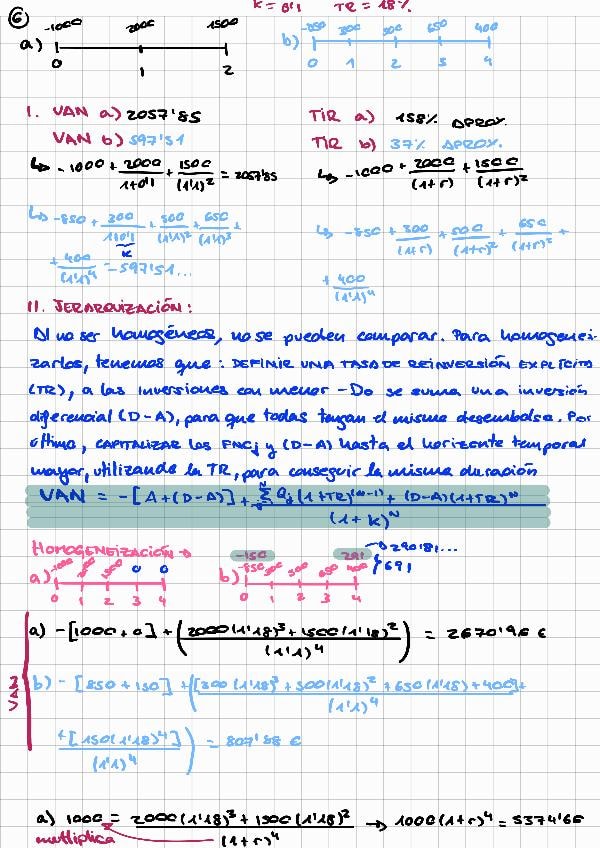 6
K = 0'1 TR = 18%
a) -1000 2000 1500
0 1 2
b) -850 300 500 650 400
0 1 2 3 4
I. VAN a) 2057'85
VAN b) 597'51
↳ -1000 + 2000/1+0'1 + 1500/(1'1)² = 2057'85
↳ -850 + 300/1+0'1 + 500/(1'1)² + 650/(1'1)³ +
K
+ 400/(1'1)⁴ = 597'51...
TIR a) 158% APROX.
TIR b) 37% APROX.
↳ -1000 + 2000/(1+r) + 1500/(1+r)²
↳ -850 + 300/(1+r) + 500/(1+r)² + 650/(1+r)³ +
+ 400/(1'1)⁴
II. JERARQUIZACIÓN:
Al no ser homogéneos, no se pueden comparar. Para homogenei-
zarlos, tenemos que: DEFINIR UNA TASA DE REINVERSIÓN EXPLÍCITA
(TR), a las inversiones con menor -Do se suma una inversión
diferencial (D-A), para que todas tengan el mismo desembolso. Por
último, CAPITALIZAR los FNCj y (D-A) hasta el horizonte temporal
mayor, utilizando la TR, para conseguir la misma duración
VAN = -[A+(D-A)] + Σ Qj(1+TR)⁽ⁿ⁻¹⁾ + (D-A)(1+TR)ᴺ
(1+k)ᴺ
HOMOGENEIZACIÓN →
a) -1000 2000 1500 0 0
0 1 2 3 4
b) -150 291 → 290'81...
-850 300 500 650 400 } 691
0 1 2 3 4
VAN
a) -[1000+0] + (2000(1'18)³ + 1500(1'18)²/(1'1)⁴) = 2670'96 €
b) -[850+150] + ([300(1'18)³ + 500(1'18)² + 650(1'18) + 400]/(1'1)⁴ +
+ [150(1'18)⁴]/(1'1)⁴) = 807'88 €
a) 1000 = 2000(1'18)³ + 1500(1'18)²/(1+r)⁴ → 1000(1+r)⁴ = 5374'66
multiplica